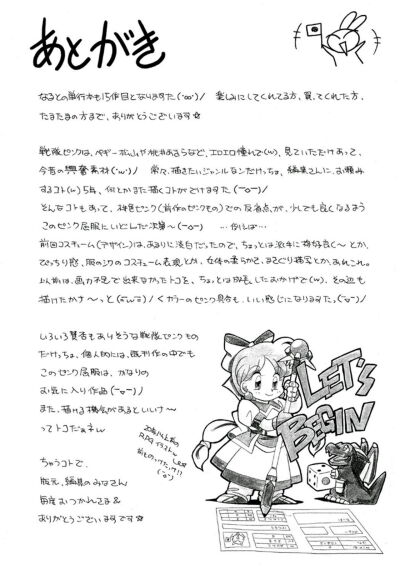 あとがき
なるとの単行本も15作目となりますた(^ω^)ノ 楽しみにしてくれてる方、買ってくれた方、
たまたまの方まで、ありがとうございます☆
戦隊ピンクは、ペギー
など、エロエロ憧れで(w)、見ていただけあって、
今昔の興奮素材(^w^)ノ 常々、描きたいジャンルなんだけっちょ、編集さんに、お頼み
するコト(w)5年、何とかまた描くコトができますた(ー▽ー)ノ
そんなコトもあって、神
ピンク(前作のピンクもの)での反省点が、少しでも良くなるよう
このピンク屈服にいどんだ次第〜(ー▽ー) …例えば…
前回コスチューム(デザイン)は、あまりに淡白だったので、ちょっとは派手に格好良く〜とか、
ぴっちり感、服のシワのコスチューム表現とか、女体の柔らかさ、まさぐり描写とか、あれこれ。
以前は、画力不足で出来なかったトコを、ちょっとは成長したおかげで(w)、その辺も
描けたかナ〜っと
カラーのピンク具合も、いい感じになりますた
いろいろ賛否もありそうな戦隊ピンクもの
だけっちょ、個人的には、既刊作の中でも
このピンク屈服は、かなりの
お気に入り作品(ー▽ー)ノ
また、描ける機会があるといいナ〜
ってトコだぁネ
ちゅうコトで、
版元、編集のみなさん
毎度おつかれさま&
ありがとうございますです☆
20年くらい前の
RPGイラスト
LET'S
BEGIN